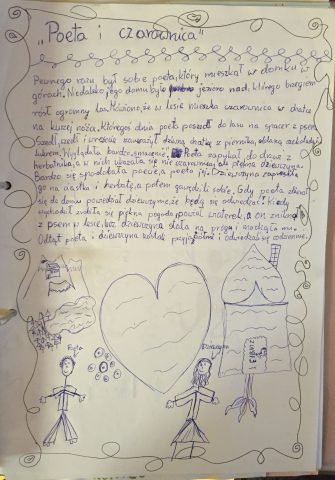 "Poeta i czarownica"
Pewnego razu był sobie poeta, który mieszkał w domku w
górach. Niedaleko jego domu było jezioro nad, którego brzegiem
rósł ogromny las. Mówiono, że w lesie mieszka czarownica w chatce
na kurzej nóżce. Któregoś dnia poeta poszedł do lasu na spacer z psem.
Szedł, szedł i wreszcie zauważył dziwną chatkę z piernika, oblaną czekoladą i
lukrem. Wyglądała bardzo smacznie. Poeta zapukał do drzwi z
herbatnika, a w nich ukazała się nie czarownica ale piękna dziewczyna.
Bardzo się spodobała poecie, a poeta jej. Dziewczyna zaprosiła
go na ciastka i herbatę, a potem gawędzili sobie. Gdy poeta zbierał
się do domu powiedział dziewczynie, że będą się odwiedzać. Kiedy
wychodził zrobiła się piękna pogoda, powiał wiaterek, a on zniknął
z psem w lesie, zaś dziewczyna stała na progu i machała mu.
Odtąd poeta i dziewczyna zostali przyjaciółmi i odwiedzali się codziennie.
Poeta
Dziewczyna